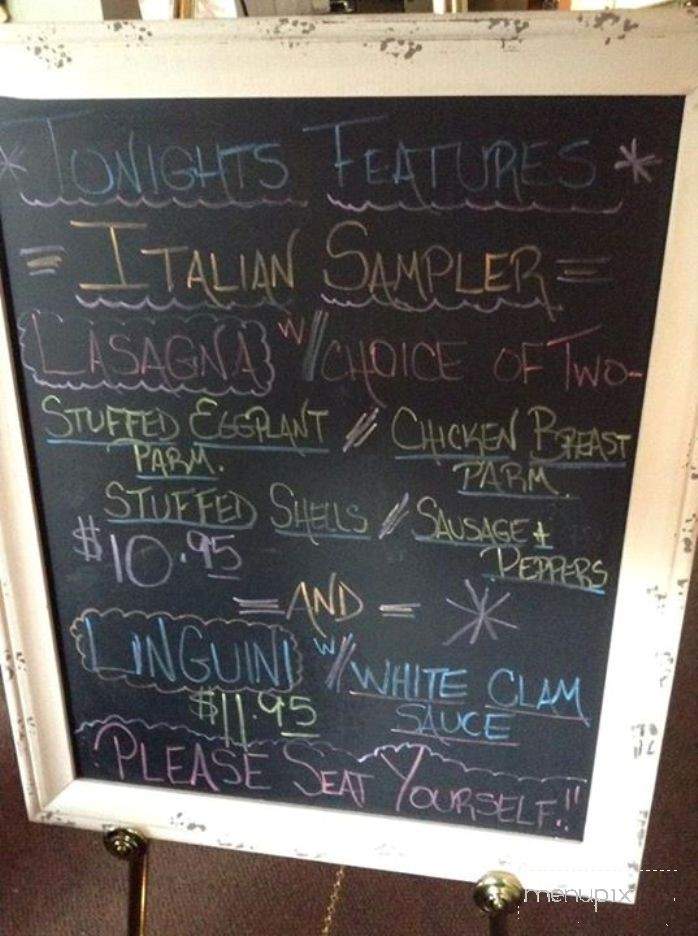 * TONIGHTS FEATURES *
= ITALIAN SAMPLER =
LASAGNA W/ CHOICE OF TWO-
STUFFED EGGPLANT / CHICKEN BREAST
PARM. PARM.
STUFFED SHELLS / SAUSAGE &
$10.95 PEPPERS
= AND = *
LINGUINI W/ WHITE CLAM
$11.95 SAUCE
PLEASE SEAT YOURSELF!!
menupix